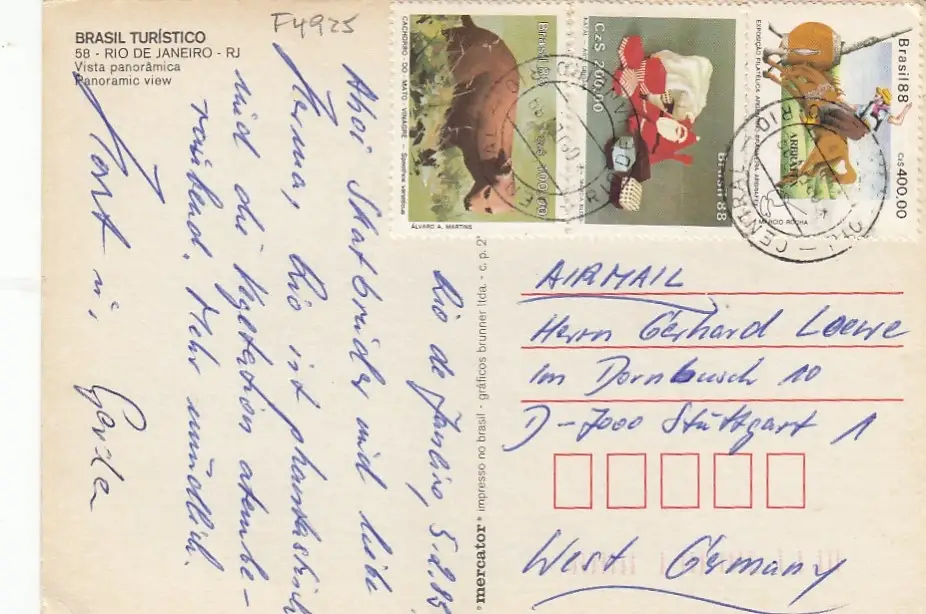 F4925
BRASIL TURÍSTICO
58 - RIO DE JANEIRO - RJ
Vista panorâmica
Panoramic view
Rio de Janeiro,
Ahoi Skatbrüder und liebe
Rio ist phantastisch
und die Vegetation atembe-
raubend. Mehr mündlich.
Gerda
CACHORRO DO MATO VINAGRE - Speothos venaticus
Brasil 88
100,00
ÁLVARO A. MARTINS
Cz$ 200,00
Brasil 88
EXPOSIÇÃO FILATÉLICA
Brasil 88
Cz$ 400,00
MARCIO ROCHA
CENTRAL
RIO DE
*mercator* impresso no brasil - gráficos brunner ltda. - c. p. 2
AIRMAIL
Herrn Gerhard Loewe
Im Dornbusch 10
D-7000 Stuttgart 1
West Germany